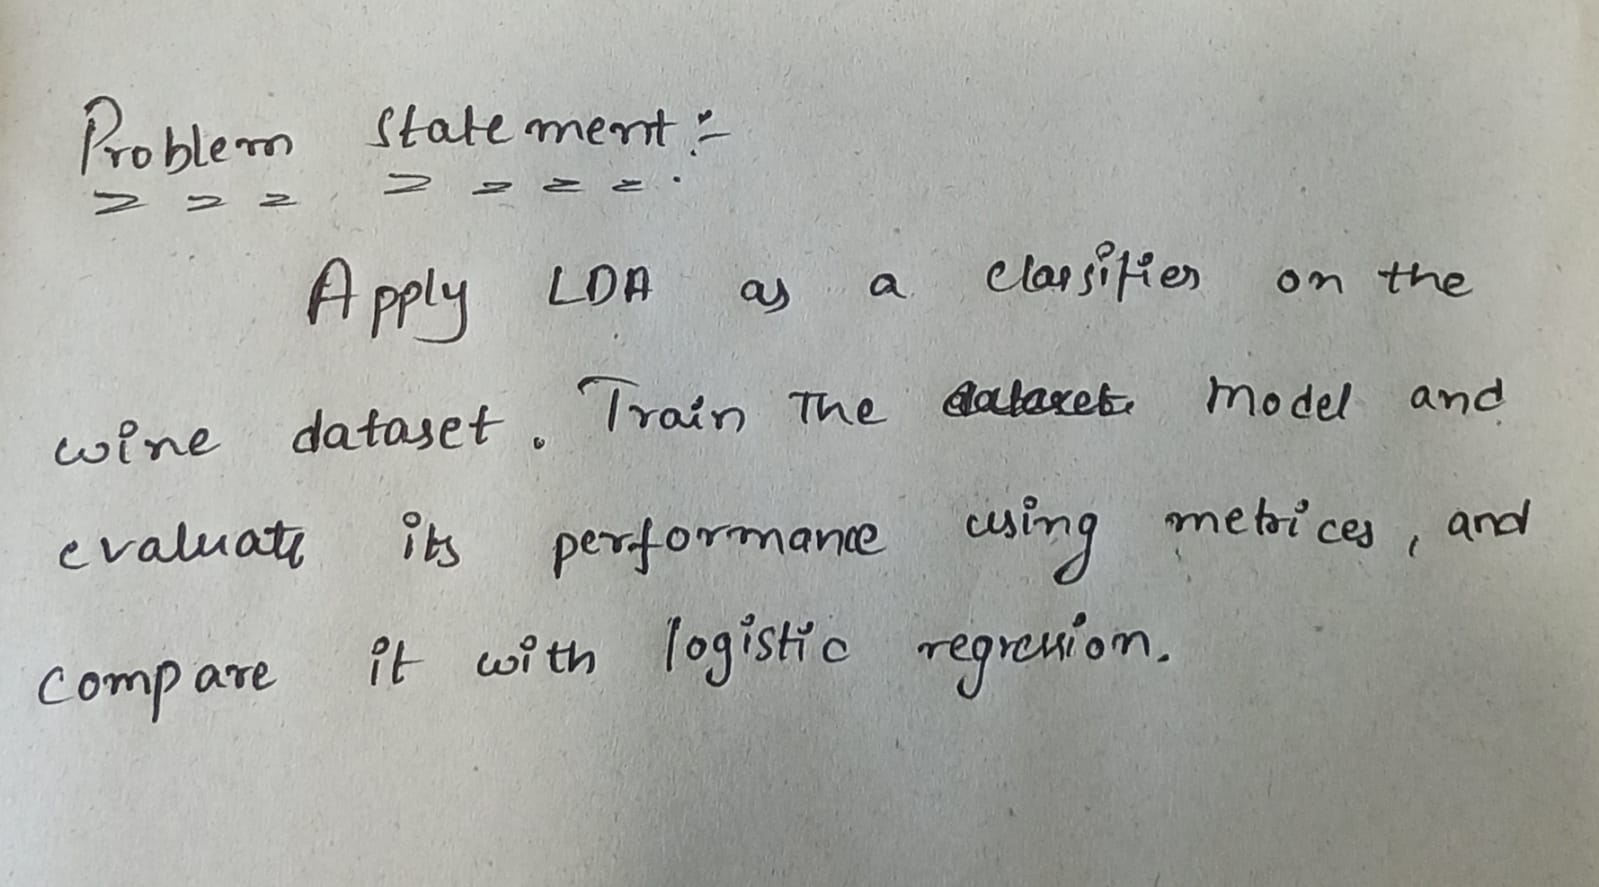 Problem statement :-
Apply LDA as a classifier on the
wine dataset. Train The model and
evaluate its performance using metrices, and
compare it with logistic regression.